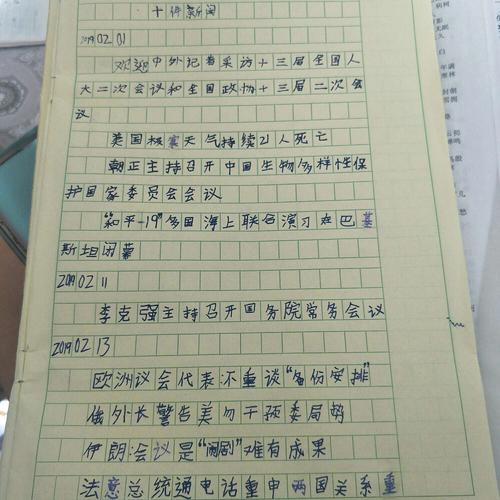 十件新闻
2019 02 01
欢迎中外记者采访十三届全国人
大二次会议和全国政协十三届二次会
议
美国极寒天气持续21人死亡
朝正主持召开中国生物多样性保
护国家委员会会议
"和平-19"多国海上联合演习在巴基
斯坦闭幕
2019 02 11
李克强主持召开国务院常务会议
2019 02 13
欧洲议会代表:不重谈"备份安排"
俄外长警告美勿干预委局势
伊朗:会议是"闹剧"难有成果
法意总统通电话重申两国关系重